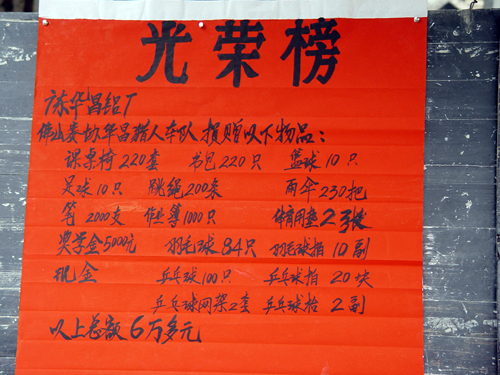 光荣榜
广东华昌铝厂
佛山姜协华昌猎人车队 捐赠以下物品：
课桌椅220套 书包220只 篮球10只
足球10只 跳绳200条 雨伞230把
笔2000支 作业簿1000只 体育用垫2张
奖学金5000元 羽毛球84只 羽毛球拍10副
现金 乒乓球100只 乒乓球拍20块
乒乓球网架2套 乒乓球枱2副
以上总额6万多元